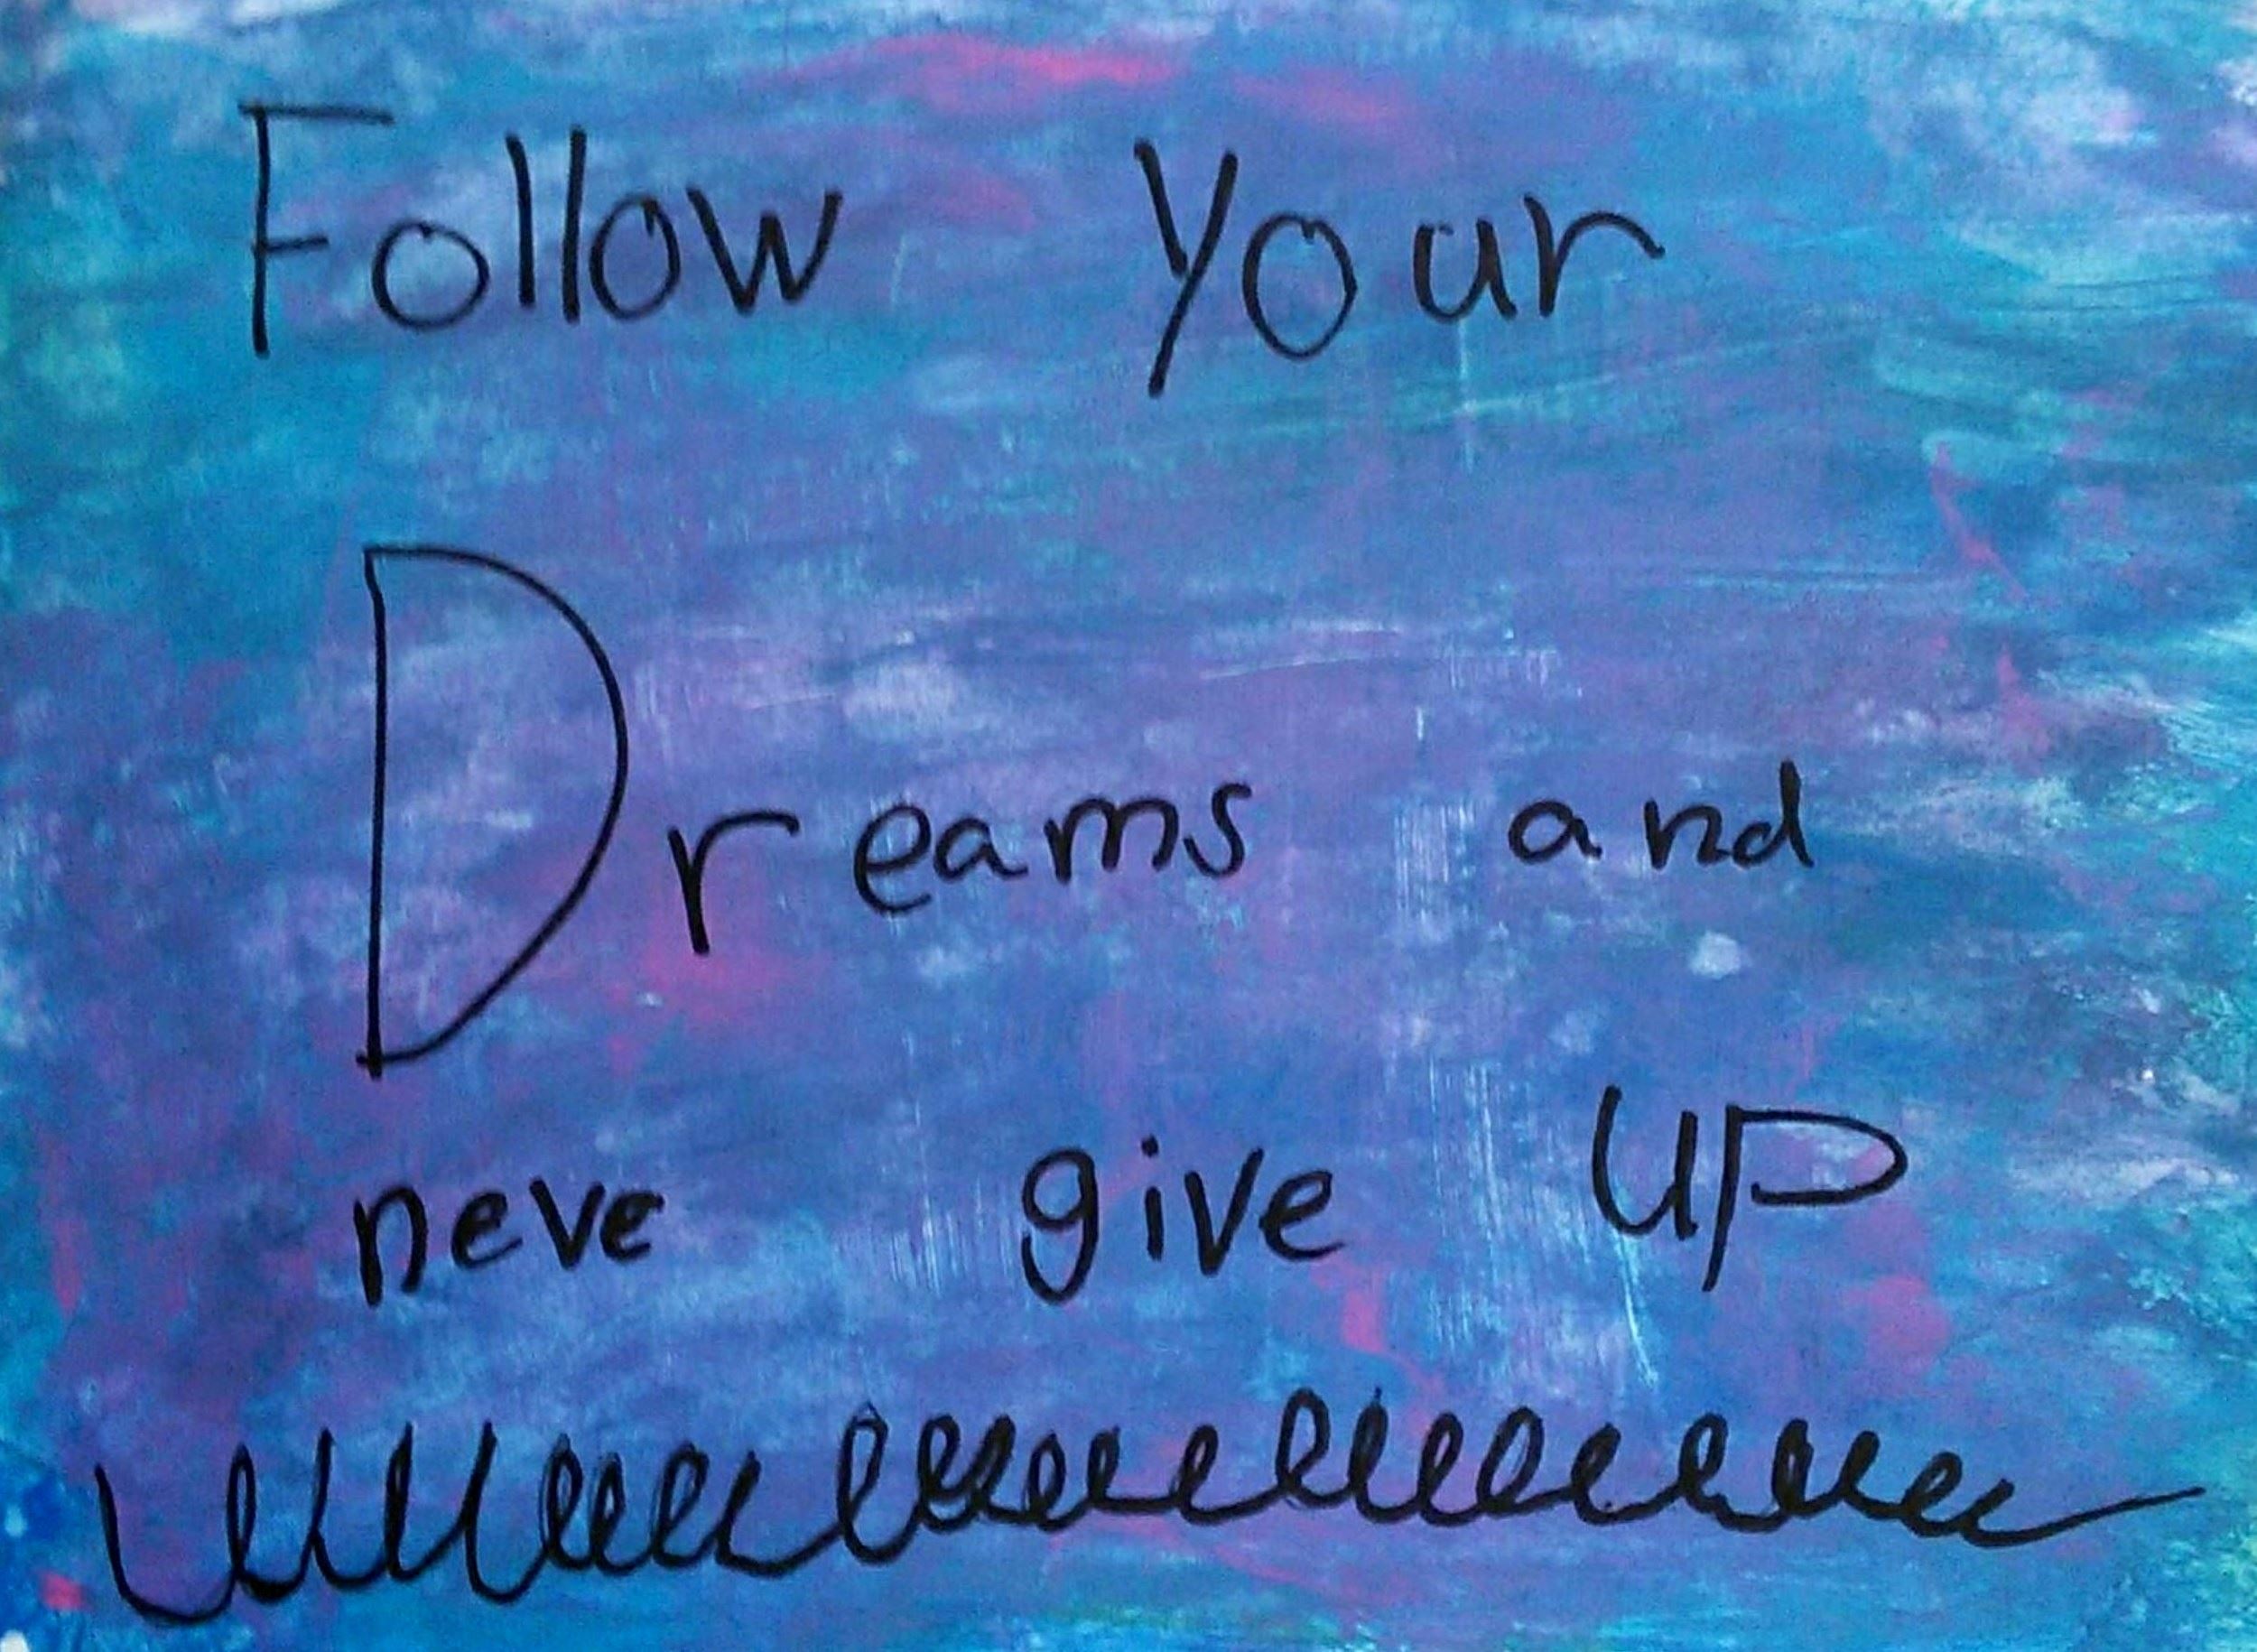 Follow Your
Dreams and
neve give UP